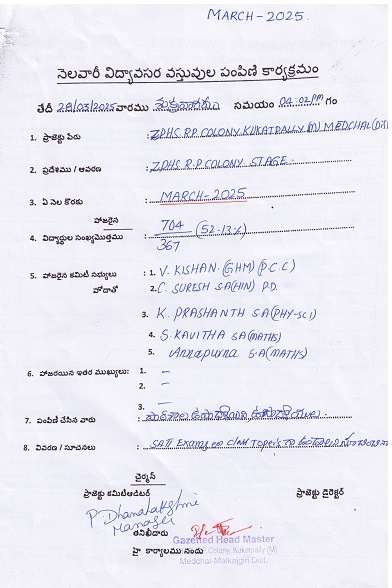 MARCH-2025.
నెలవారీ విద్యావసర వస్తువుల పంపిణి కార్యక్రమం
తేదీ 28/03/2025 వారము శుక్రవారం సమయం 04:02PM గం
1. ప్రాజెక్టు పేరు : ZPHS R.P. COLONY KUKATPALLY (M) MEDCHAL (Dist)
2. ప్రదేశము / ఆవరణ : ZPHS R.P COLONY STAGE.
3. ఏ నెల కొరకు : MARCH-2025
హాజరైన
4. విద్యార్థుల సంఖ్యమొత్తము : 704 (52.13%)
367
5. హాజరైన కమిటీ సభ్యులు : 1. V. KISHAN (GHM) (P.C.C)
హోదాతో 2. C. SURESH SA(HIN) P.D.
3. K. PRASHANTH SA(PHY-SCI)
4. S. KAVITHA SA(MATHS)
5. Annapurna S.A(MATHS)
6. హాజరయిన ఇతర ముఖ్యులు: 1. —
2. —
3. —
7. పంపిణి చేసిన వారు :
8. వివరణ / సూచనలు : SA II Exams
చైర్మన్
ప్రాజెక్టు కమిటఆడిటర్ ప్రాజెక్టు డైరెక్టర్
P. Dhanalakshmi
Manager
తనిఖీదారు
Gazetted Head Master
P Colony, Kukatpally (M)
హై కార్యాలము నందు
Medchal-Malkajgiri Dist.